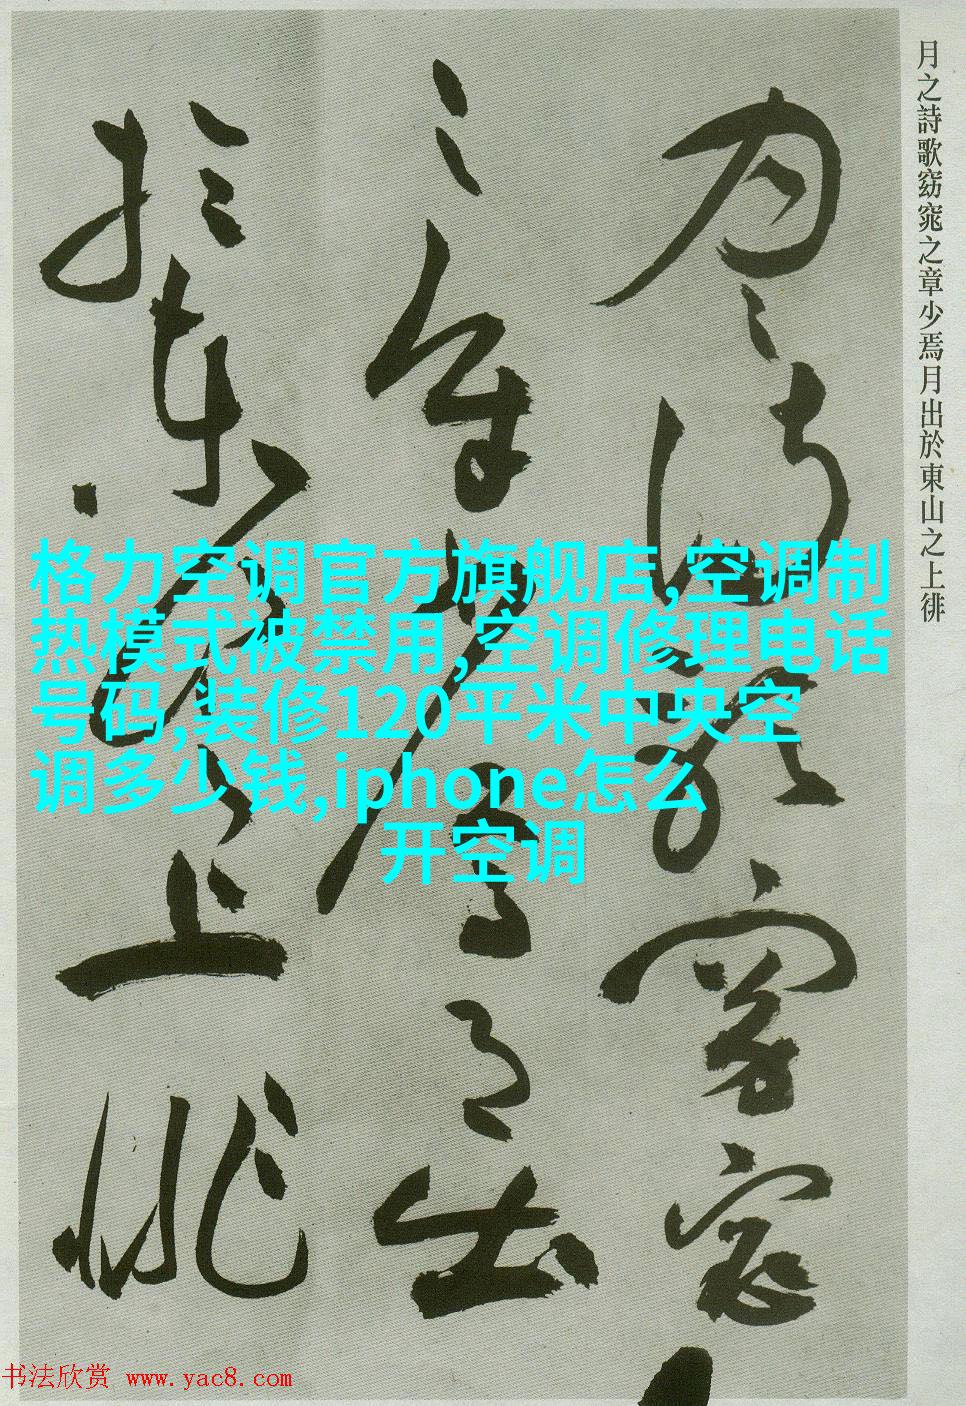 月之詩歌窈窕之章少焉月出於東山之上徘
月之詩歌窈窕
之章少焉月出
於東山之上徘
格力空调官方旗舰店,空调制
热模式被禁用,空调修理电话
号码,装修120平米中央空
调多少钱,iphone怎么
开空调
书法欣赏 www.yac8.com